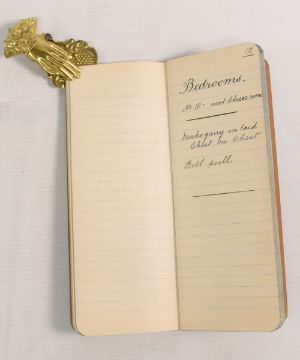 12
Bedrooms.
No 10 - next Cheese room
Mahogany inlaid
Chest on Chest
Bell pull